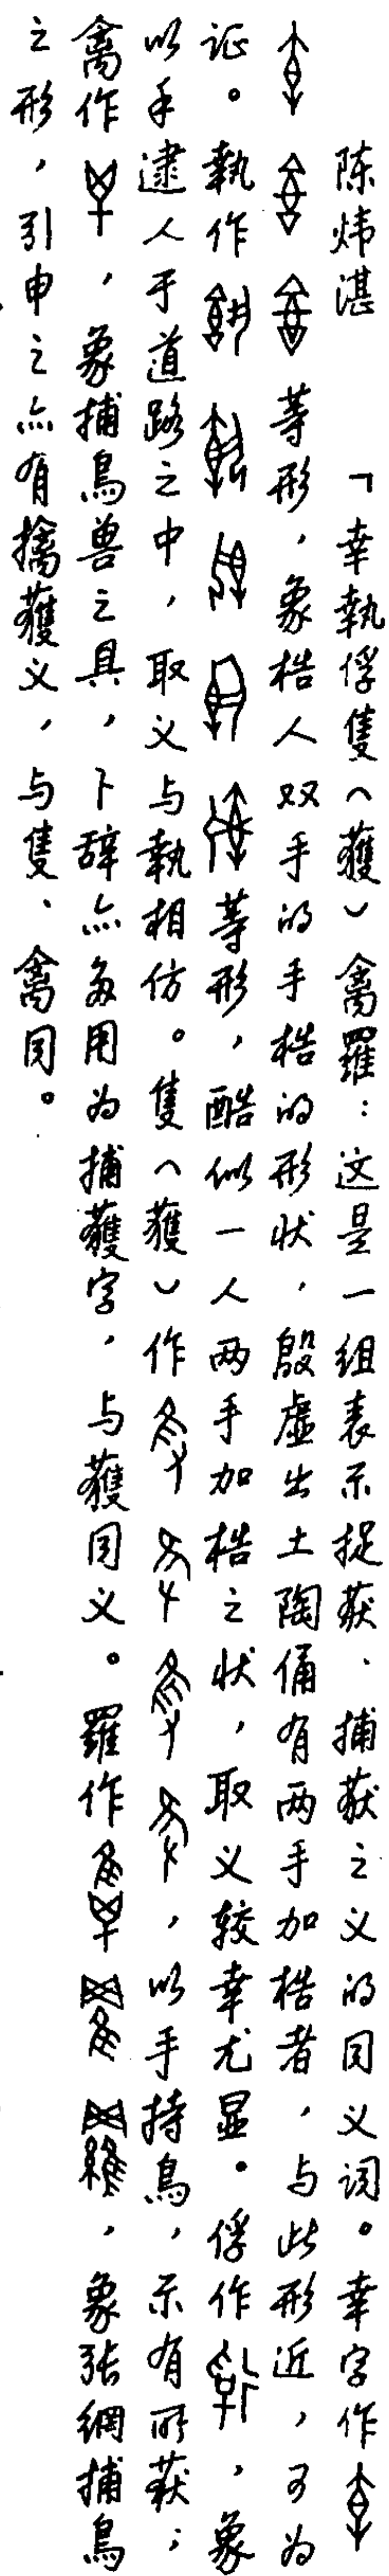 陈炜湛　「幸執俘隻(獲)禽羅:这是一组表示捉获、捕获之义的同义词。幸字作
等形,象梏人双手的手梏的形状,殷虚出土陶俑有两手加梏者,与此形近,可为
证。執作等形,酷似一人两手加梏之状,取义较幸尤显。俘作,象
以手逮人于道路之中,取义与執相仿。隻(獲)作,以手持鳥,示有所获;
禽作,象捕鳥兽之具,卜辞亦多用为捕獲字,与獲同义。羅作,象张網捕鳥
之形,引申之亦有擒獲义,与隻、禽同。